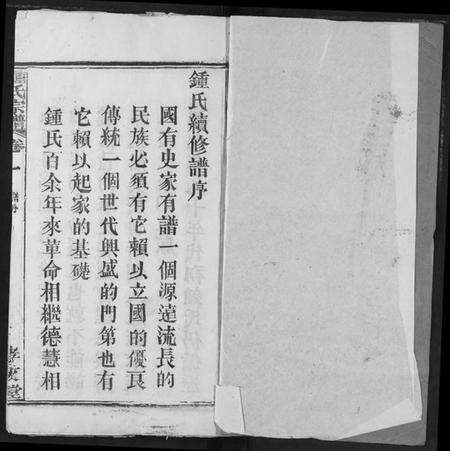 鍾氏續修譜序
國有史家有譜一個源遠流長的
民族必須有它賴以立國的優良
傳統一個世代興盛的門第也有
它賴以起家的基礎
鍾氏百余年來革命相繼德慧相
氏宗譜 卷一 譜序
堂